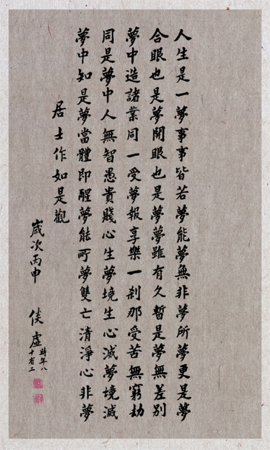 人生是一夢事事皆若夢能夢無非夢所夢更是夢
合眼也是夢開眼也是夢夢雖有久暫是夢無差別
夢中造諸業同一受夢報享樂一剎那受苦無窮劫
同是夢中人無智愚貴賤心生夢境生心滅夢境滅
夢中知是夢當體即醒夢能所夢雙亡清淨心非夢
居士作如是觀
歲次丙申 倓虛 時年八十有二